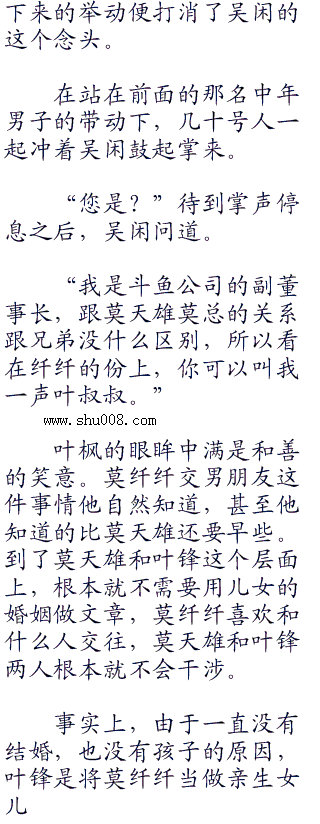 下来的举动便打消了吴闲的
这个念头。
在站在前面的那名中年
男子的带动下，几十号人一
起冲着吴闲鼓起掌来。
“您是？”待到掌声停
息之后，吴闲问道。
“我是斗鱼公司的副董
事长，跟莫天雄莫总的关系
跟兄弟没什么区别，所以看
在纤纤的份上，你可以叫我
一声叶叔叔。”
www.shu008.com
叶枫的眼眸中满是和善
的笑意。莫纤纤交男朋友这
件事情他自然知道，甚至他
知道的比莫天雄还要早些。
到了莫天雄和叶锋这个层面
上，根本就不需要用儿女的
婚姻做文章，莫纤纤喜欢和
什么人交往，莫天雄和叶锋
两人根本就不会干涉。
事实上，由于一直没有
结婚，也没有孩子的原因，
叶锋是将莫纤纤当做亲生女
儿